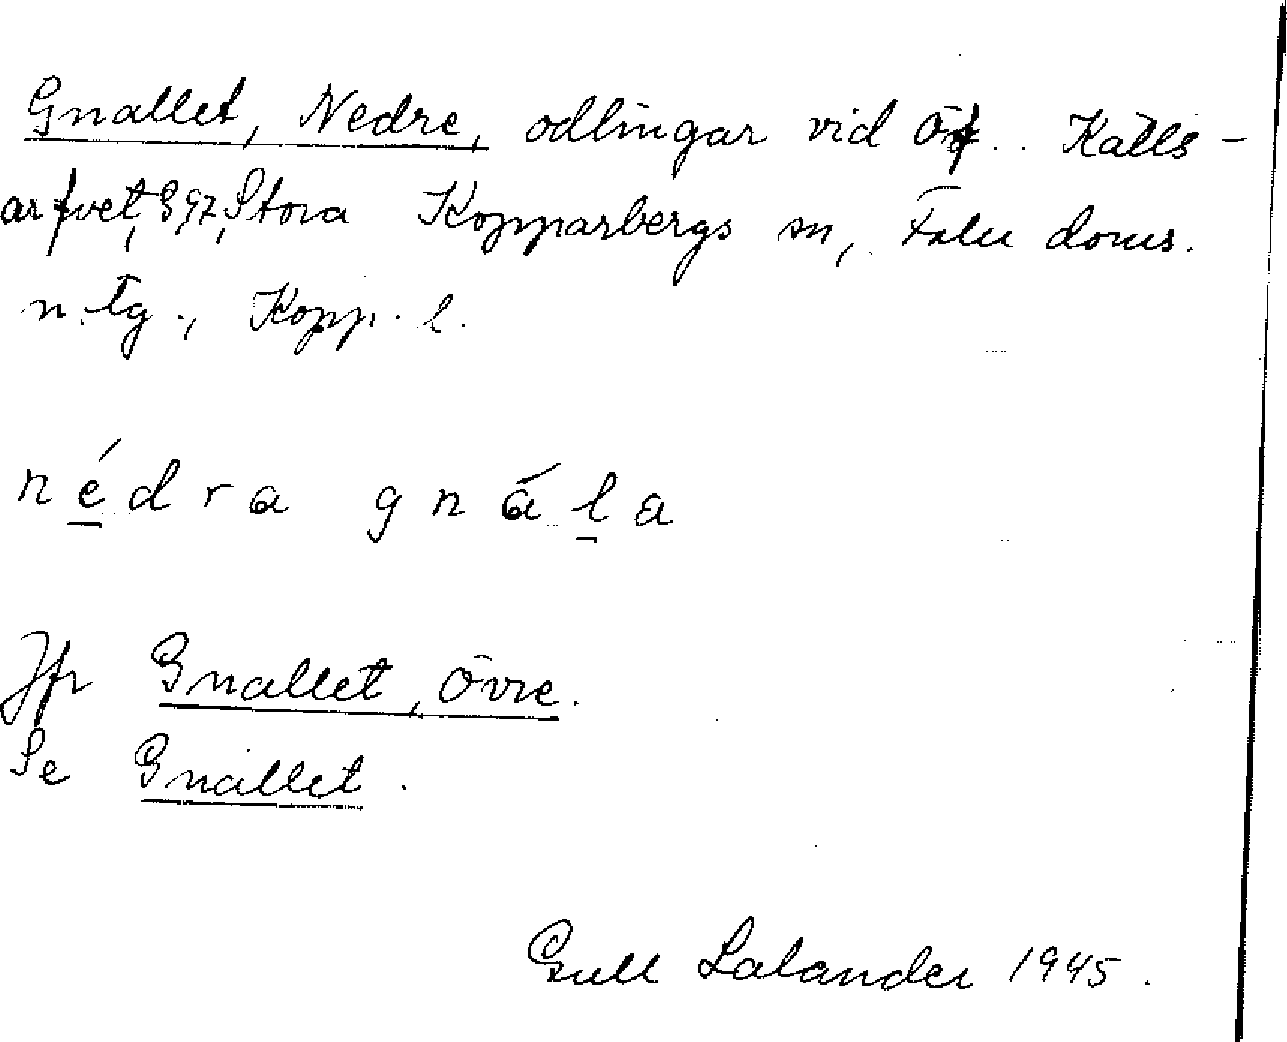 Gnallet, Nedre, odlingar vid Öf. Källs-
arfvet, S 97, Stora Kopparbergs sn, Falu doms.
n. tg., Kopp. l.
nédra gnála
Jfr Gnallet, Övre.
Se Gnallet.
Gull Lalander 1945.